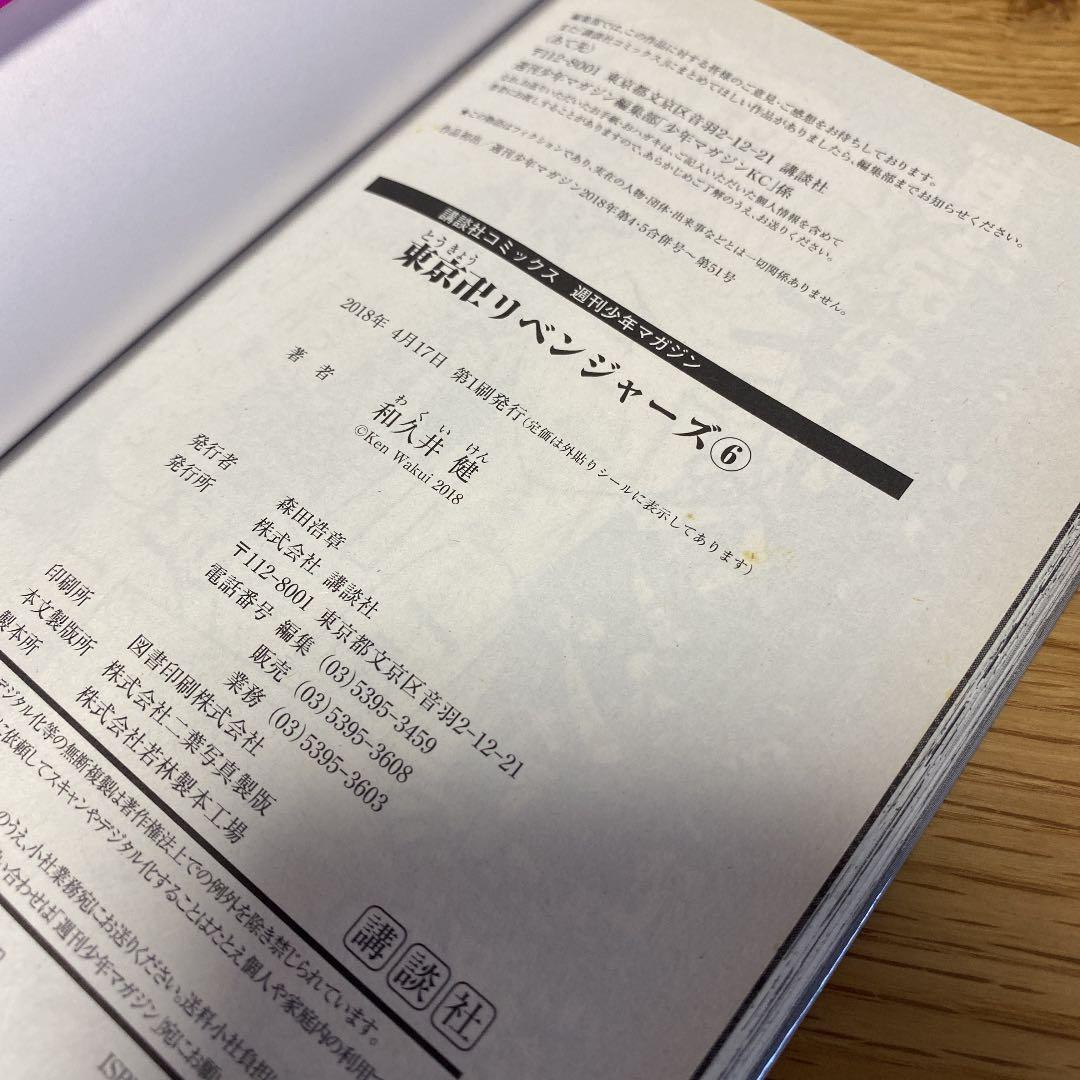 編集部では、この作品に対する皆様のご意見・ご感想をお待ちしております。
また「講談社コミックス」にまとめてほしい作品がありましたら、編集部までお知らせください。
〈あて先〉
〒112-8001 東京都文京区音羽2-12-21 講談社
週刊少年マガジン編集部「少年マガジンKC」係
なお、お送りいただいたお手紙・おハガキは、ご記入いただいた個人情報を含めて
お渡しすることがありますので、あらかじめご了解のうえ、お送りください。
★この物語はフィクションであり、実在の人物・団体・出来事などとは一切関係ありません。
作品初出/週刊少年マガジン2018年第4・5合併号～第51号
講談社コミックス 週刊少年マガジン
とうきょう
東京卍リベンジャーズ⑥
2018年 4月17日 第1刷発行(定価は外貼りシールに表示してあります)
わくい けん
著者 和久井 健
©Ken Wakui 2018
発行者 森田浩章
発行所 株式会社 講談社
〒112-8001 東京都文京区音羽2-12-21
電話番号 編集 (03)5395-3459
販売 (03)5395-3608
業務 (03)5395-3603
印刷所 図書印刷株式会社
本文製版所 株式会社二葉写真製版
製本所 株式会社若林製本工場
デジタル化等の無断複製は著作権法上での例外を除き禁じられています。
に依頼してスキャンやデジタル化することはたとえ個人や家庭内の利用
のうえ、小社業務宛にお送りください。送料小社負担
い合わせは「週刊少年マガジン」宛にお願
講談社